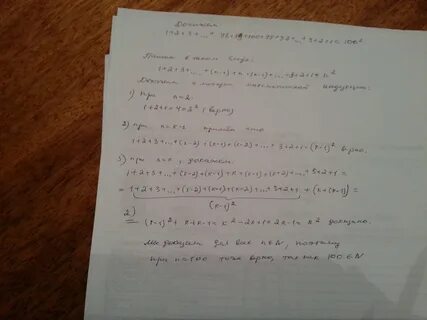 Докажем
1+2+3+...+ 98+99+100+99+98+...+3+2+1=100²
в таком виде:
1+2+3+...+(n-1)+n+(n-1)+...+3+2+1=n²
Докажем с помощью индукции:
1) При n=2:
1+2+1=4=2² (верно)
2) при n=k-1 что
1+2+3+...+(k-2)+(k-1)+(k-2)+...+3+2+1=(k-1)² верно.
3) при n=k, докажем
1+2+3+...+(k-2)+(k-1)+k+(k-1)+(k-2)+...+3+2+1=
=1+2+3+...+(k-2)+(k-1)+(k-2)+...+3+2+1+(k+(k-1))=
(k-1)²
2)
=(k-1)²+k+k-1=k²-2k+1+2k-1=k² доказано.
Мы доказали для всех n∈N, поэтому
при n=100 тоже верно, так как 100∈N